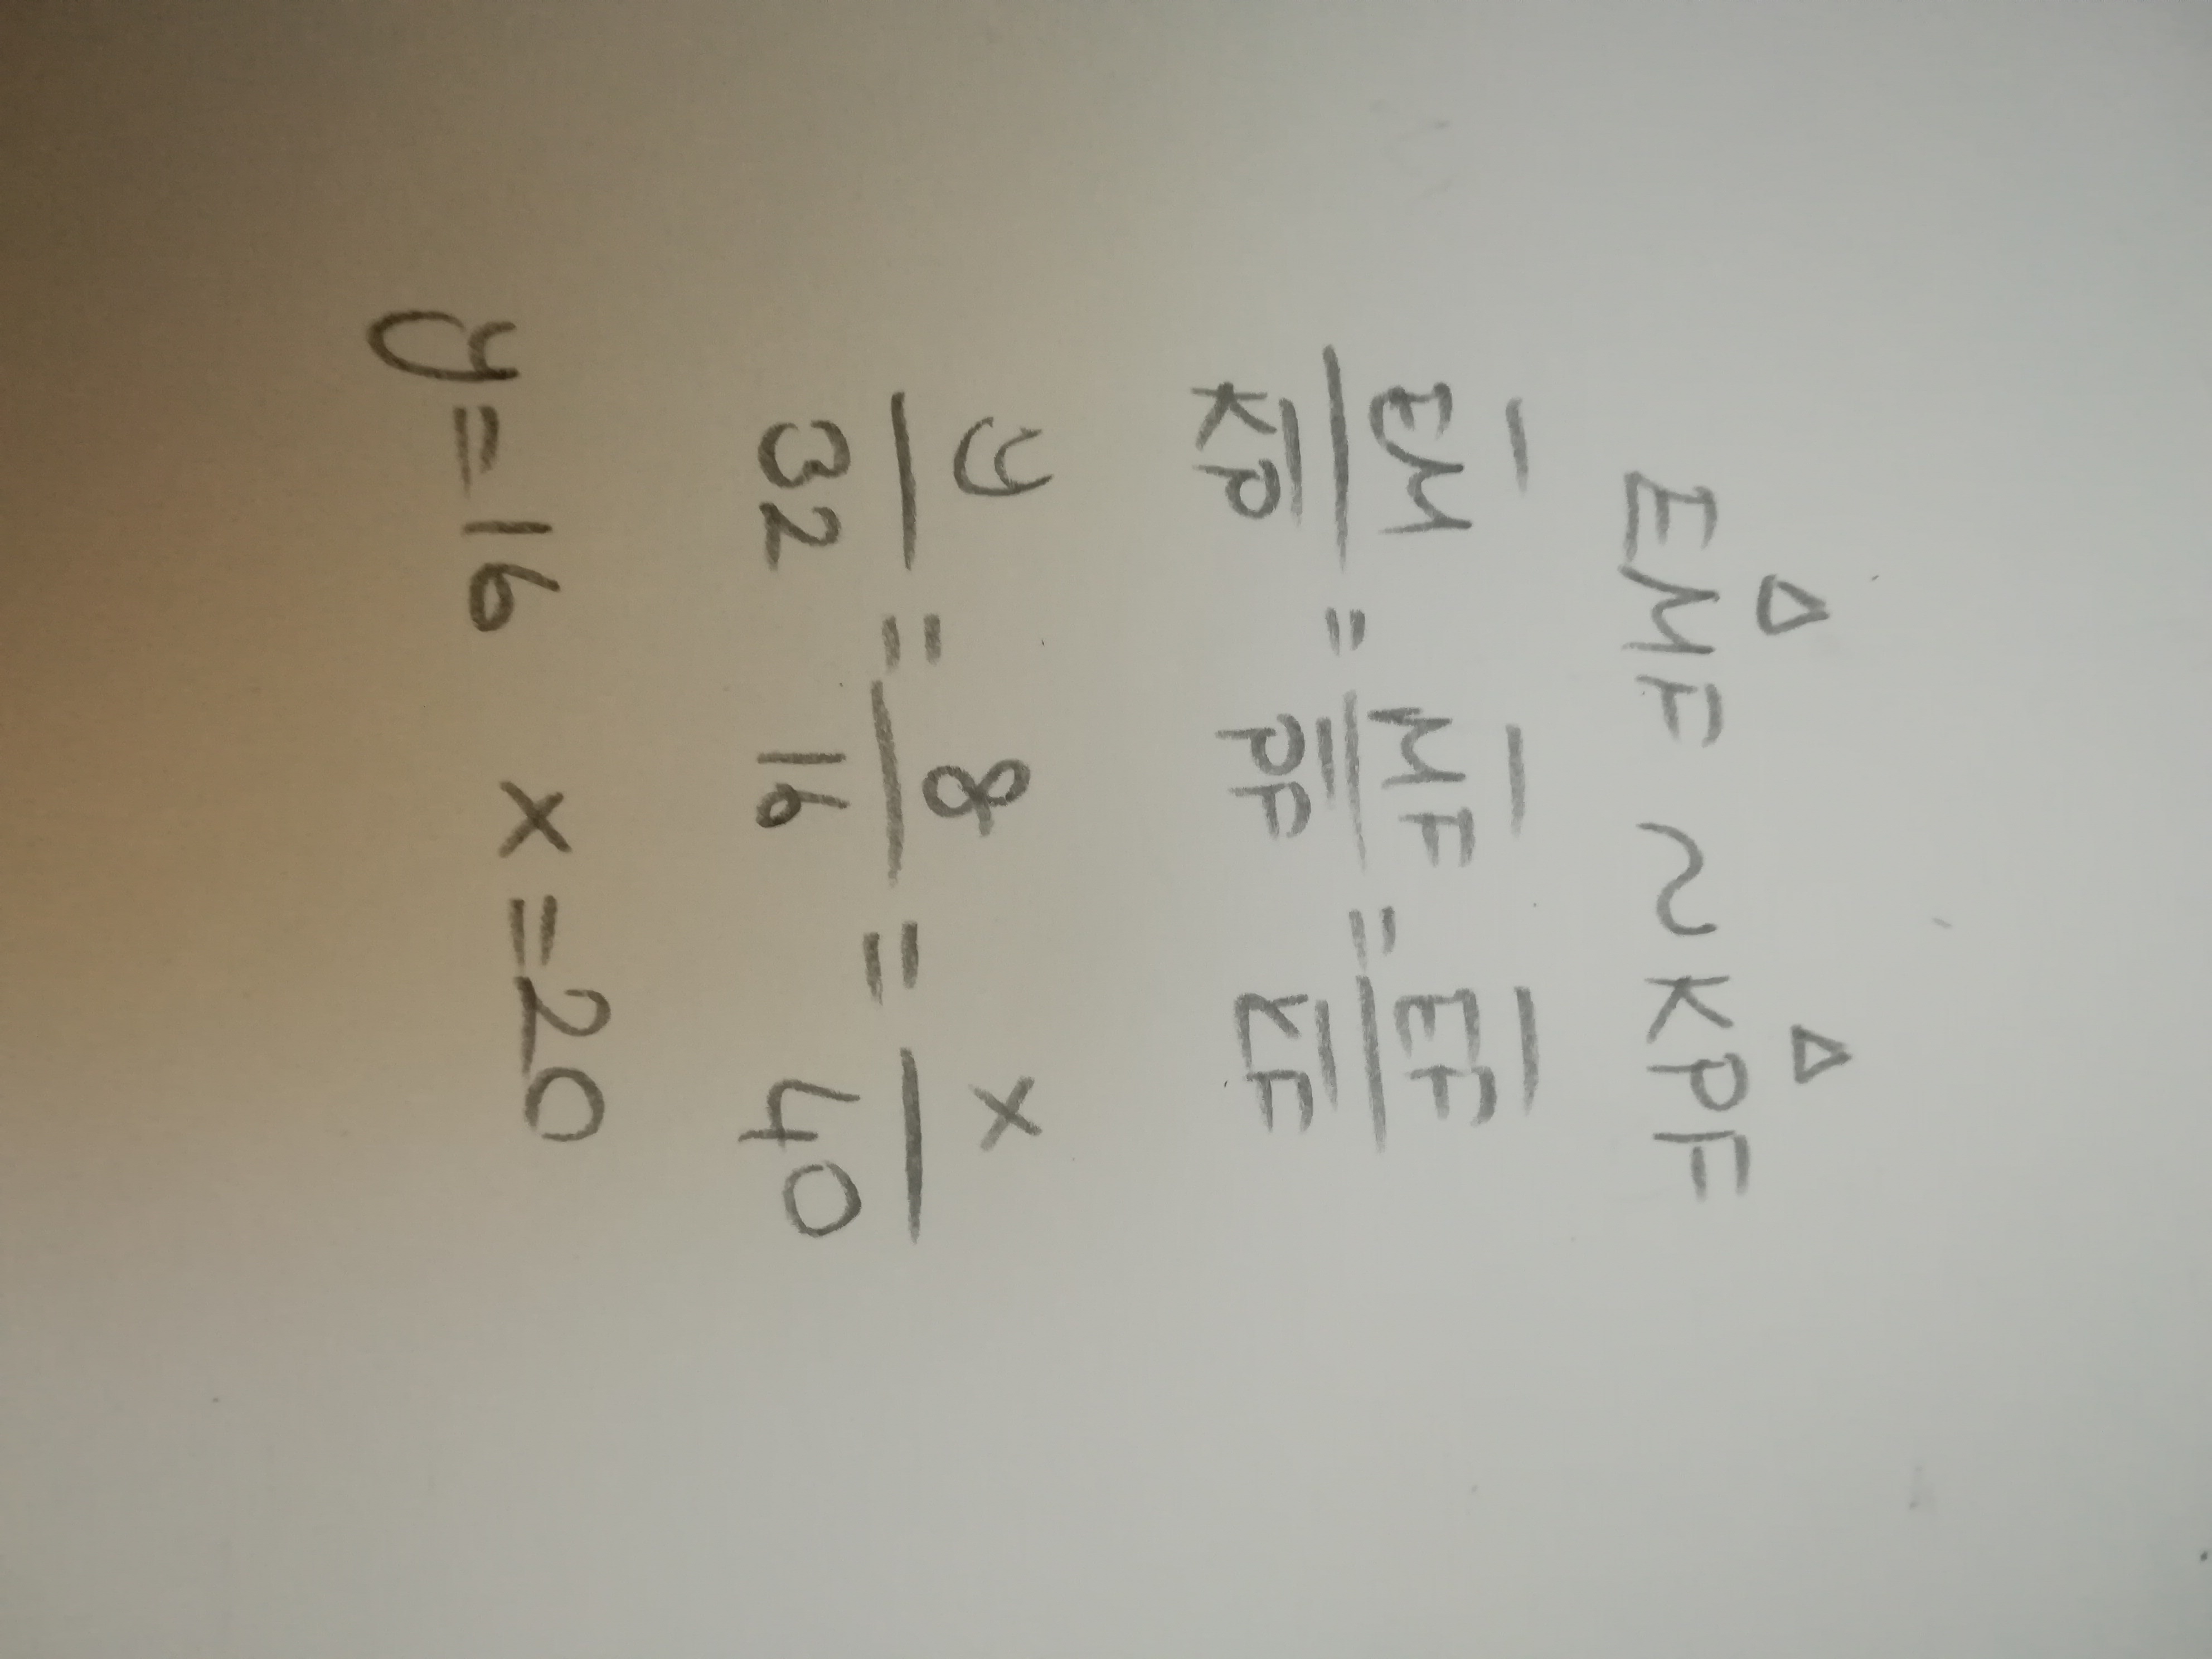 △ △
EMF ~ KPF
EM/KP = MF/PF = EF/KF
y/32 = 8/16 = x/40
y=16 x=20